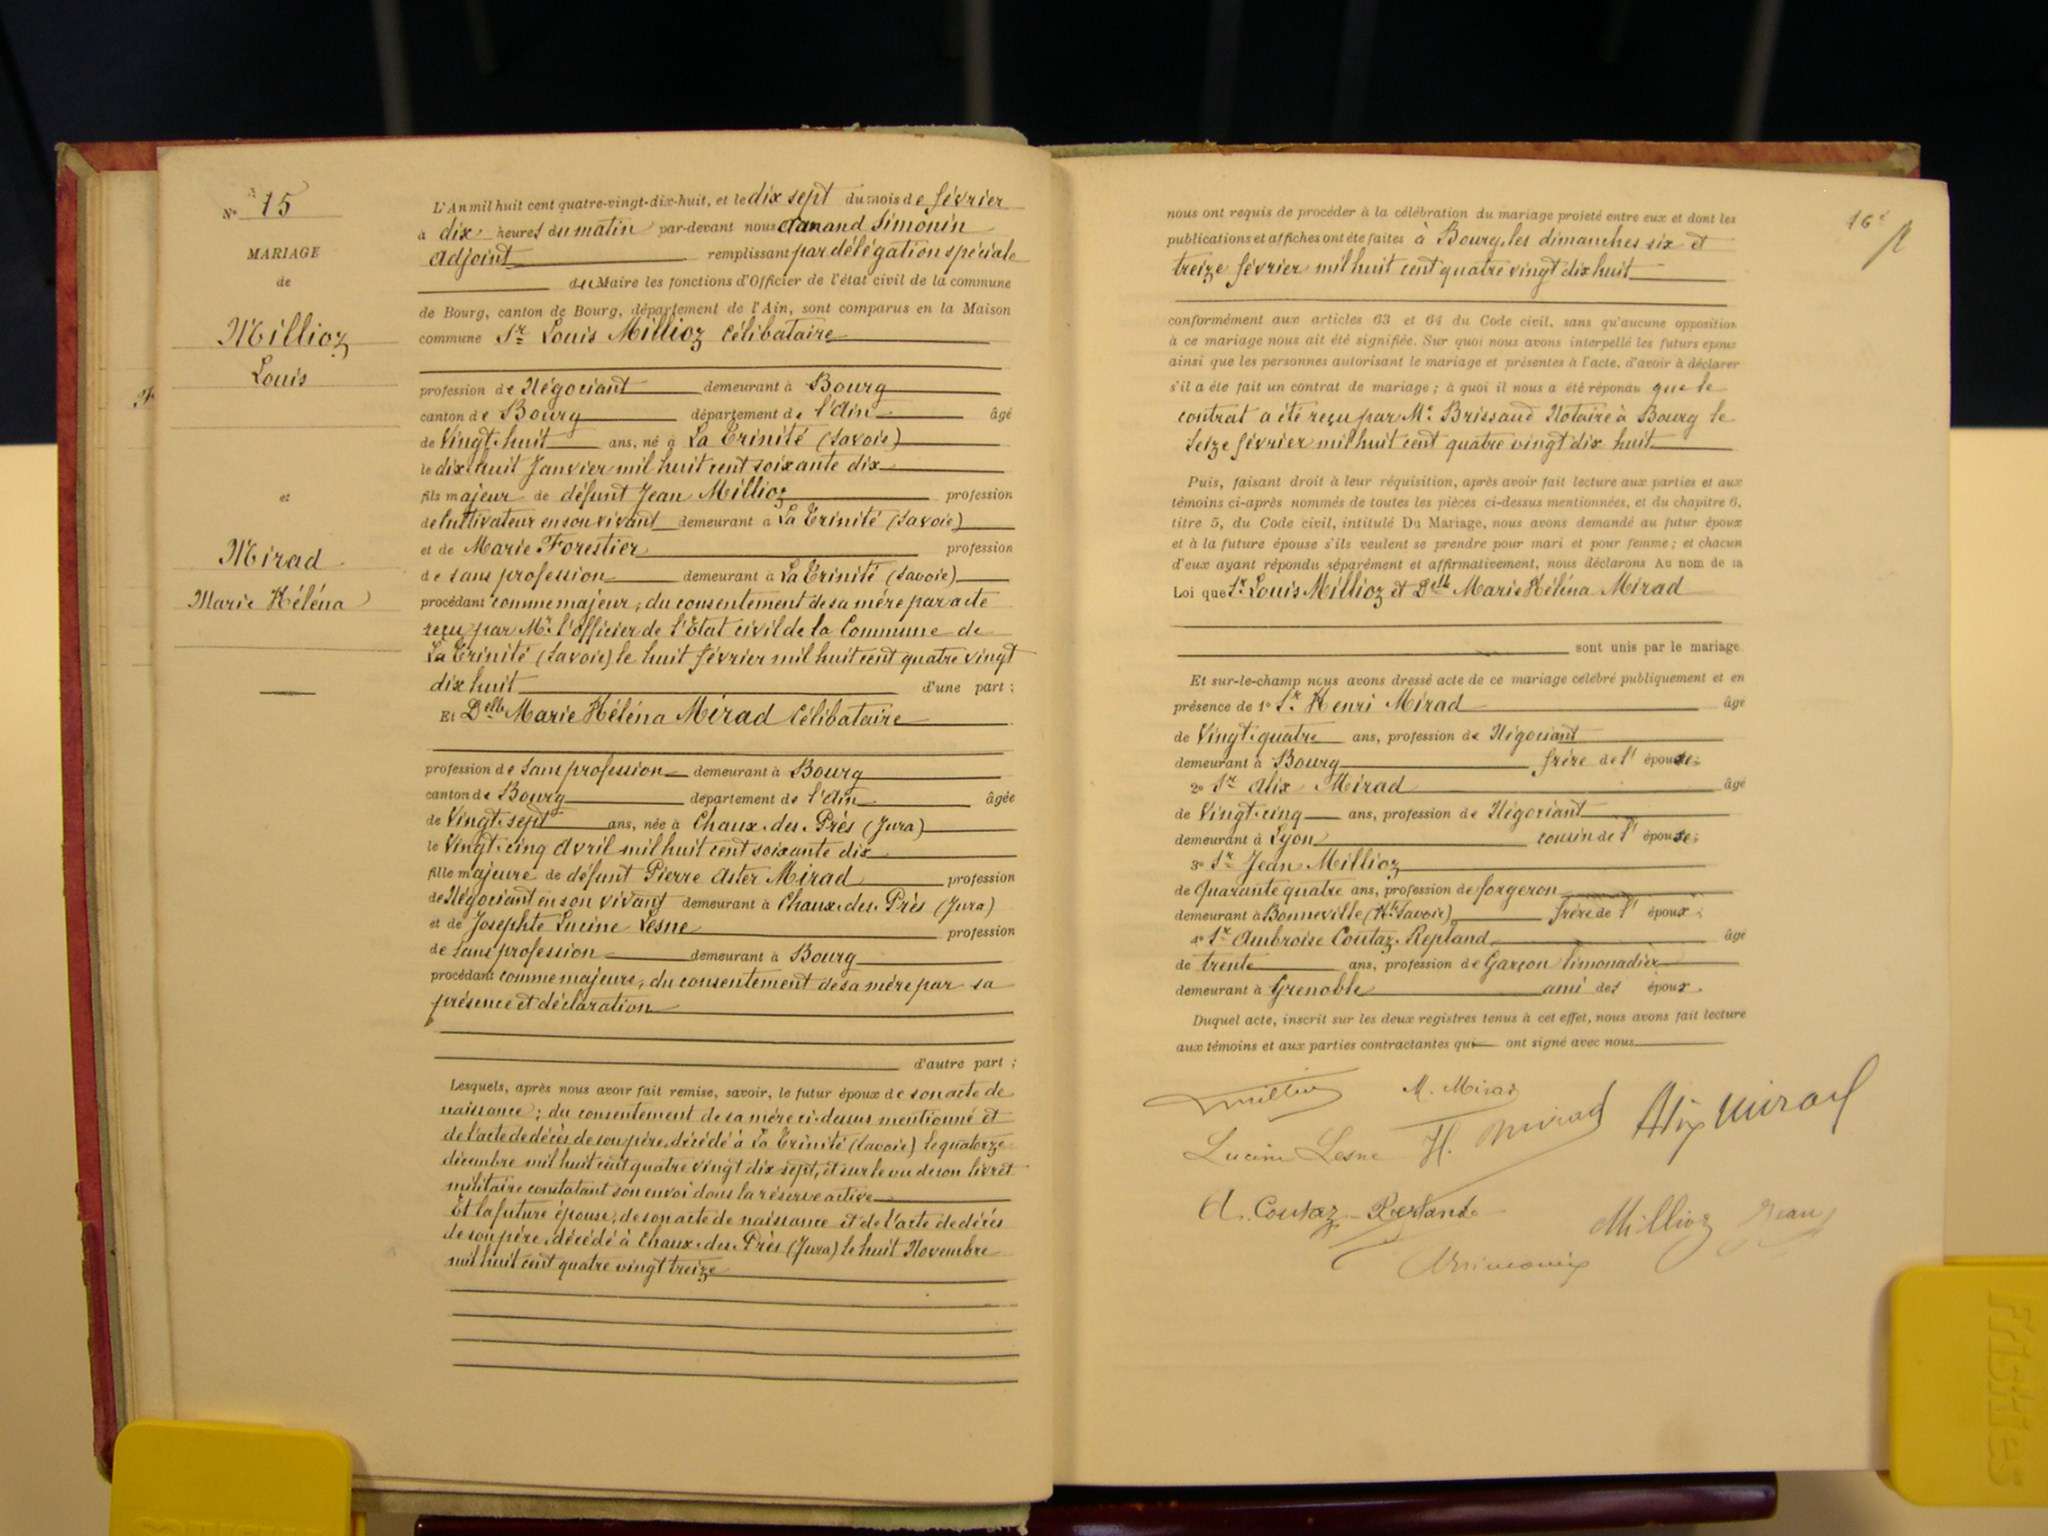 N° 15
MARIAGE
de
Millioz
Louis
et
Mirad
Marie Héléna
L'An mil huit cent quatre-vingt-dix-huit, et le dix sept du mois de février
à dix heures du matin par-devant nous Amand Simonin
Adjoint remplissant par délégation spéciale
du Maire les fonctions d'Officier de l'état civil de la commune
de Bourg, canton de Bourg, département de l'Ain, sont comparus en la Maison
commune Sr Louis Millioz Célibataire
profession de Négociant demeurant à Bourg
canton de Bourg département de l'Ain âgé
de Vingt-huit ans, né à La Trinité (Savoie)
le dix-huit Janvier mil huit cent soixante dix
fils majeur de défunt Jean Millioz profession
de Cultivateur en son vivant demeurant à La Trinité (Savoie)
et de Marie Forestier profession
de sans profession demeurant à La Trinité (Savoie)
procédant comme majeur, du consentement de sa mère par acte
reçu par Mr l'officier de l'Etat civil de la Commune de
La Trinité (Savoie) le huit février mil huit cent quatre vingt
dix huit d'une part ;
Et Delle Marie Héléna Mirad Célibataire
profession de Sans profession demeurant à Bourg
canton de Bourg département de l'Ain âgée
de Vingt-sept ans, née à Chaux-des-Près (Jura)
le Vingt-cinq Avril mil huit cent soixante dix
fille majeure de défunt Pierre Aster Mirad profession
de Négociant en son vivant demeurant à Chaux-des-Près (Jura)
et de Josephte Lucine Lesne profession
de Sans profession demeurant à Bourg
procédant comme majeure, du consentement de sa mère par sa
présence et déclaration
d'autre part ;
Lesquels, après nous avoir fait remise, savoir, le futur époux de son acte de
naissance ; du consentement de sa mère ci-dessus mentionné et
de l'acte de décès de son père, décédé à La Trinité (Savoie) le quatorze
décembre mil huit cent quatre vingt dix sept, et sur le vu de son livret
militaire constatant son envoi dans la réserve active
Et la future épouse, de son acte de naissance et de l'acte de décès
de son père, décédé à Chaux-des-Près (Jura) le huit Novembre
mil huit cent quatre vingt treize
16e
nous ont requis de procéder à la célébration du mariage projeté entre eux et dont les
publications et affiches ont été faites à Bourg, les dimanches six et
treize février mil huit cent quatre vingt dix huit
conformément aux articles 63 et 64 du Code civil, sans qu'aucune opposition
à ce mariage nous ait été signifiée. Sur quoi nous avons interpellé les futurs époux
ainsi que les personnes autorisant le mariage et présentes à l'acte, d'avoir à déclarer
s'il a été fait un contrat de mariage ; à quoi il nous a été répondu que le
contrat a été reçu par Me Brissaud Notaire à Bourg le
Seize février mil huit cent quatre vingt dix huit
Puis, faisant droit à leur réquisition, après avoir fait lecture aux parties et aux
témoins ci-après nommés de toutes les pièces ci-dessus mentionnées, et du chapitre 6,
titre 5, du Code civil, intitulé Du Mariage, nous avons demandé au futur époux
et à la future épouse s'ils veulent se prendre pour mari et pour femme ; et chacun
d'eux ayant répondu séparément et affirmativement, nous déclarons Au nom de la
Loi que Sr Louis Millioz et Delle Marie Héléna Mirad
sont unis par le mariage
Et sur-le-champ nous avons dressé acte de ce mariage célébré publiquement et en
présence de 1° Sr Henri Mirad âgé
de Vingt-quatre ans, profession de Négociant
demeurant à Bourg frère de l'épouse ;
2° Sr Alix Mirad âgé
de Vingt-cinq ans, profession de Négociant
demeurant à Lyon cousin de l'épouse ;
3° Sr Jean Millioz
de Quarante quatre ans, profession de forgeron
demeurant à Bonneville (Hte Savoie) frère de l'époux ;
4° Sr Ambroise Coutaz-Repland âgé
de trente ans, profession de Garçon limonadier
demeurant à Grenoble ami des époux.
Duquel acte, inscrit sur les deux registres tenus à cet effet, nous avons fait lecture
aux témoins et aux parties contractantes qui ont signé avec nous
Millioz M. Mirad
Lucine Lesne H. Mirad Alix Mirad
A. Coutaz-Repland Millioz Jean
A Simonin